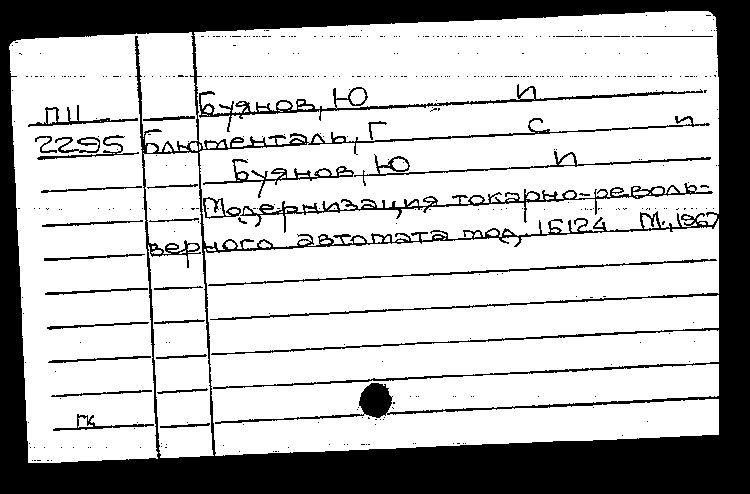 П11 Буянов, Ю И
2295 Блюменталь, Г С и
Буянов, Ю И
Модернизация токарно-револь-
верного автомата мод. 1Б124 М., 1967
ГК